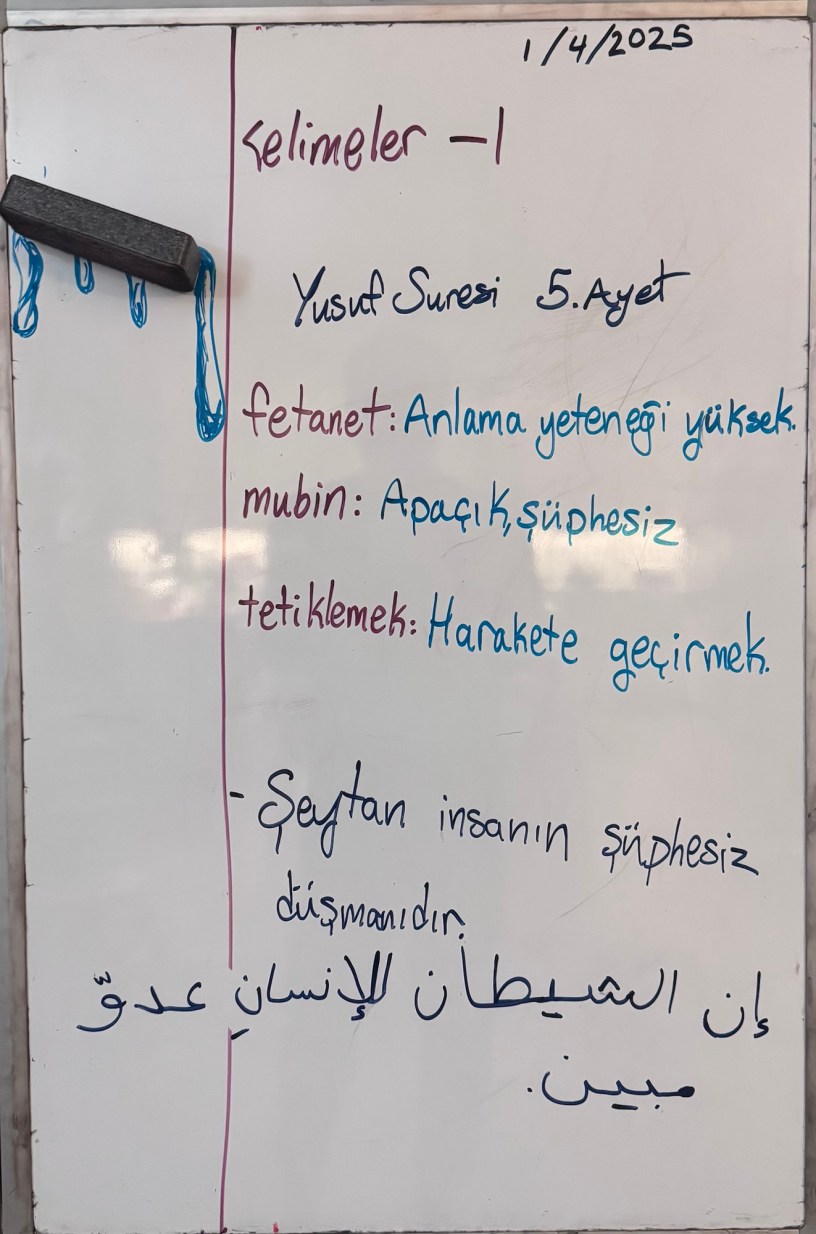 1/4/2025
Kelimeler -1
Yusuf Suresi 5.Ayet
fetanet: Anlama yeteneği yüksek.
mubin: Apaçık, şüphesiz
tetiklemek: Harakete geçirmek.
- Şeytan insanın şüphesiz
düşmanıdır.
إن الشيطان للإنسانِ عدوّ
مبين.